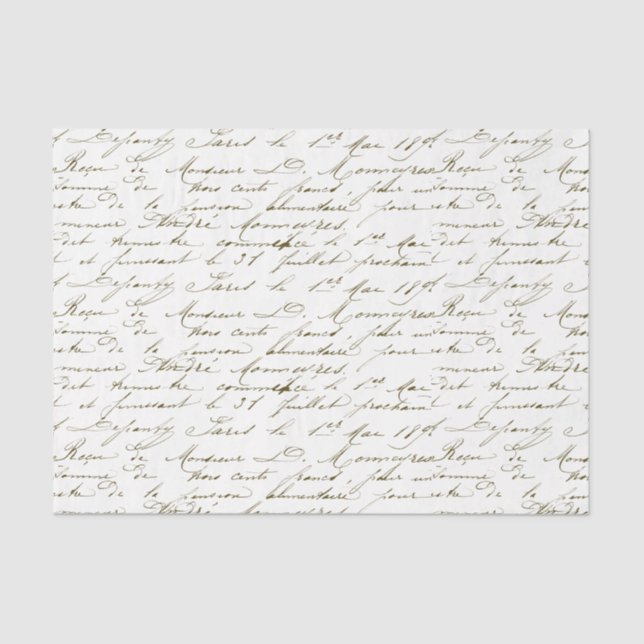 Depanty Paris le 1er Mai 189
Reçu de Monsieur D. Monseyres Reçu de Mons
Somme de trois cents francs, pour un Somme de trois
stre de la pension alimentaire pour estre de la pen
mineur André Monseyres. mineur André
dit trimestre commence le 1er Mai dit trimestre
t et finissant le 31 Juillet prochain t et finissant
Depanty Paris le 1er Mai 189 Depanty
Reçu de Monsieur D. Monseyres Reçu de Mons
Somme de trois cents francs, pour un Somme de trois
stre de la pension alimentaire pour estre de la pen
mineur André Monseyres. mineur André
dit trimestre commence le 1er Mai dit trimestre
t et finissant le 31 Juillet prochain t et finissant
Depanty Paris le 1er Mai 189 Depanty
Reçu de Monsieur D. Monseyres Reçu de Mons
Somme de trois cents francs, pour un Somme de trois
stre de la pension alimentaire pour estre de la pen
mineur André Monseyres. mineur André